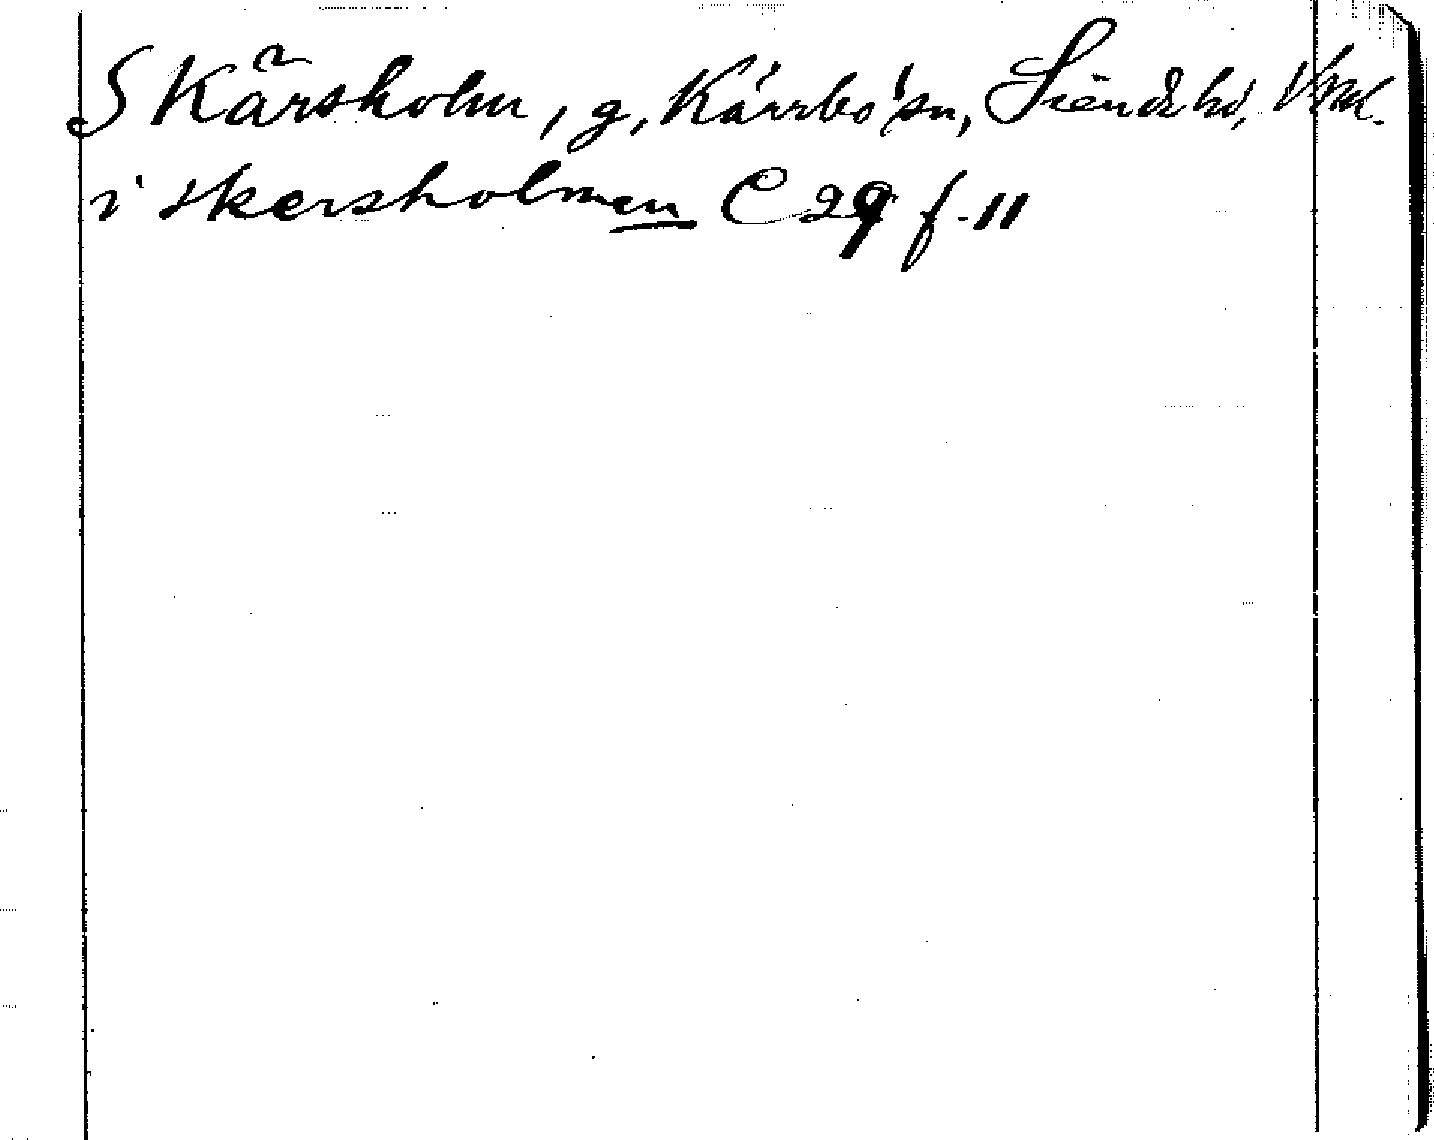 Skärsholm, g, Kärrbo sn, Siende hd, Vml.
i skersholmen C 29 f. 11